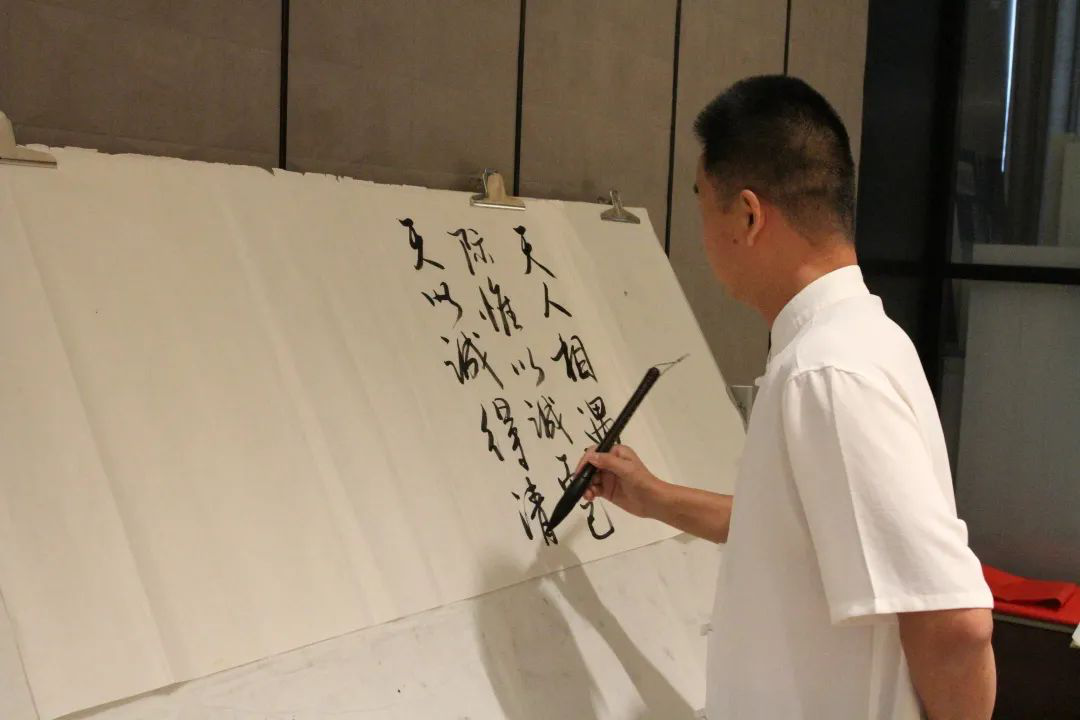 天人相遇
际惟以诚而已
天以诚得清